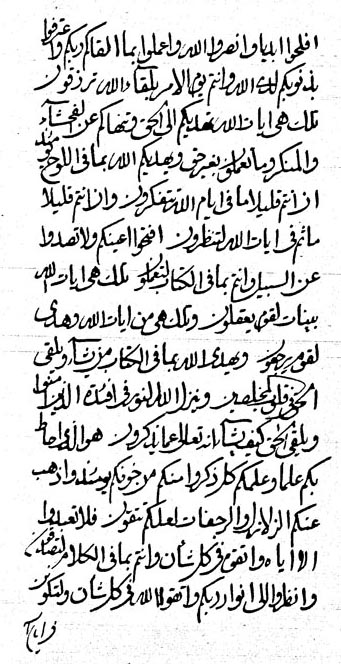 افلحوا ابدیا وانصروا الله واعملوا بما القاكم ربكم واعرفوا
بذنوبكم لدى الله وانتم یوم الامر بلقاء الله ترزقون
تلك هی ایات الله یهدیكم الی الحق وینهاكم عن الفحشاء
والمنكر وما تعملون بغیر حق ویهدیكم الله بما فی اللوح
اذ انتم قلیلا ما فی ایام الله تتفكرون واذ انتم قلیلا
ما انتم فی ایات الله لتنظرون افتحوا اعینكم ولا تصدوا
عن السبیل وانتم بما فی الكتاب لتعملون تلك هی ایات الله
بینات لقوم یعقلون وتلك هی من ایات الله وهدی
لقوم یرجعون ویهدی الله بما فی الكتاب من یشاء ویلقی
الحق فی قلوب المخلصین وینزل الله النور فی افئدة الذین
ویلقی الحق كیف یشاء انه تعالی عما یذكرون هو الذی احاط
بكم علما وعلمكم كل ذكر وامنكم من خوفكم یومئذ واذهب
عنكم الزلازل والرجفات لعلكم تتقون فلا تعبدوا
الا ایاه واتقوه فی كل شأن وانتم بما فی الكلام
وانظروا الی انوار ربكم واتقوا الله فی كل شأن ولتكونن